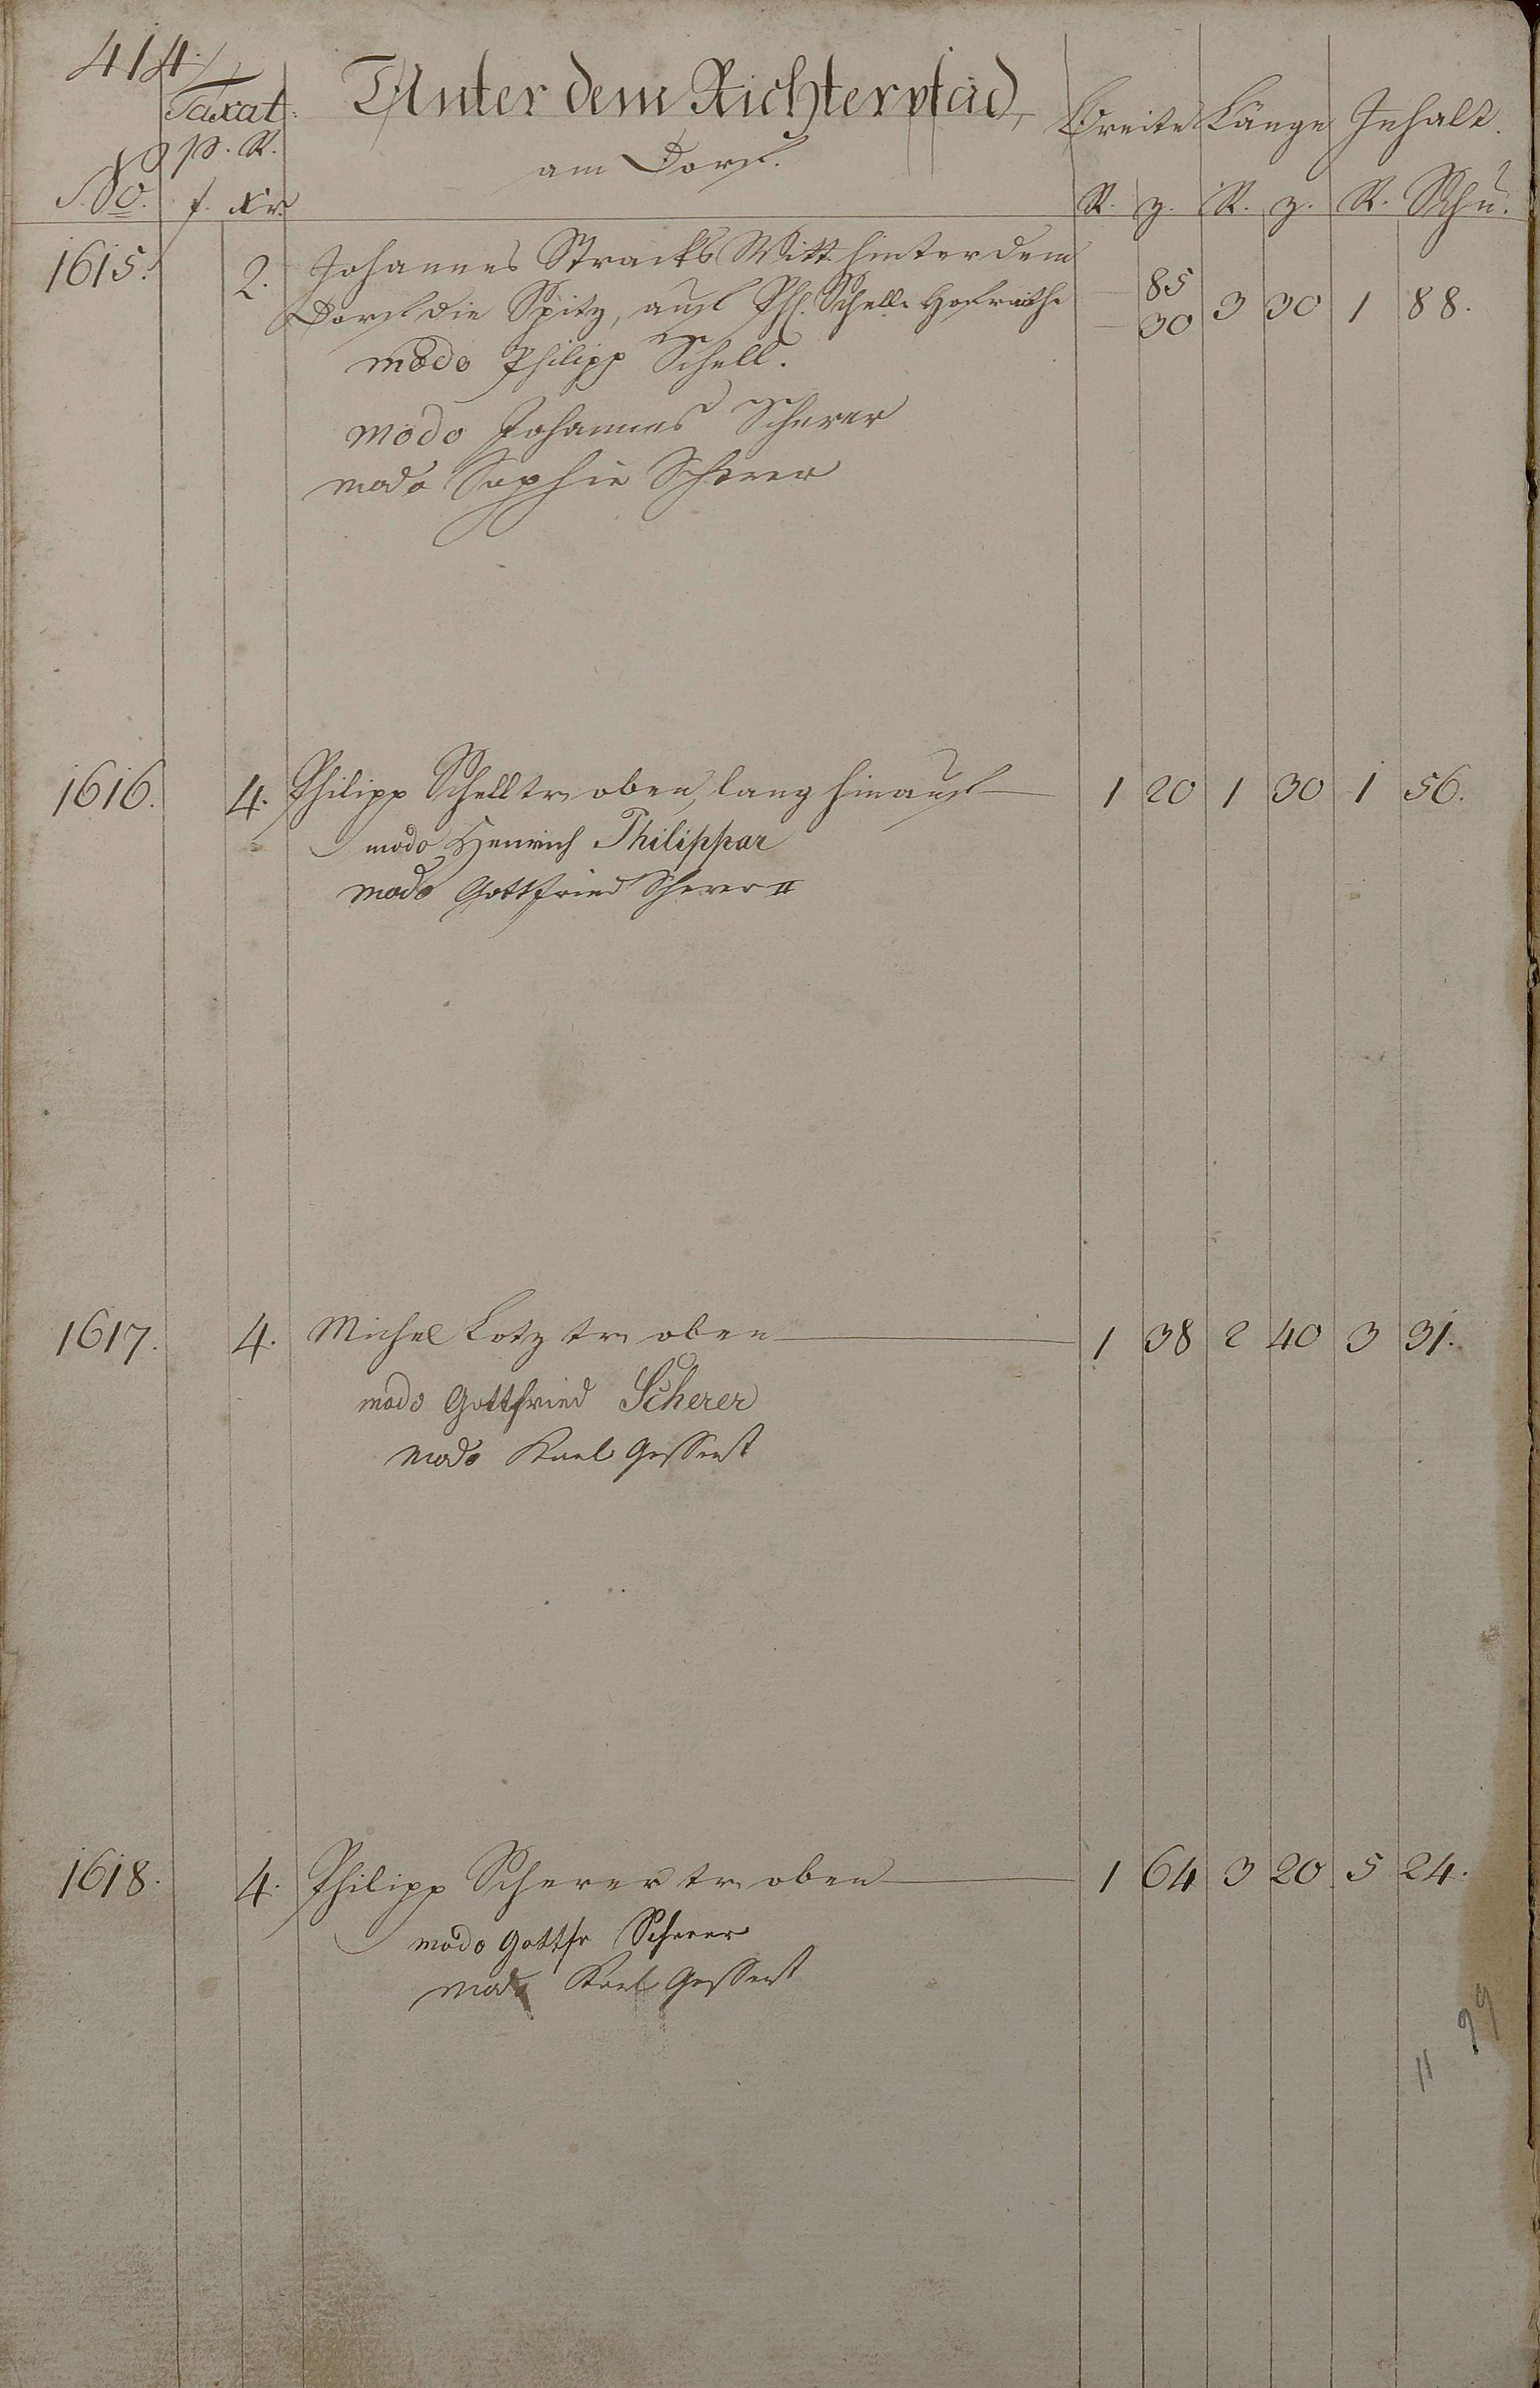 414.
Taxat. Unter dem Richterpfad, Breite Länge Inhalt.
p. R. am Dorf.
No. f. xr. R. z. R. z. R. Schu.
1615. 2. Johannes Stracks Witt. hinter dem
Dorf die Spitz, auf Phl. Schells Hofraithe — 85 — 30 3 30 1 88.
modo Philipp Schell.
modo Johannes Scherer
modo Sophie Scherer
1616. 4. Philipp Schell tr. oben, lang hinauf — 1 20 1 30 1 56.
modo Henrich Philippar
modo Gottfried Scherer II
1617. 4. Michel Lotz tr. oben — 1 38 2 40 3 31.
modo Gottfried Scherer
modo Karl Gessert
1618. 4. Philipp Scherer tr. oben — 1 64 3 20 5 24.
modo Gottfr Scherer
modo Karl Gessert
11 99